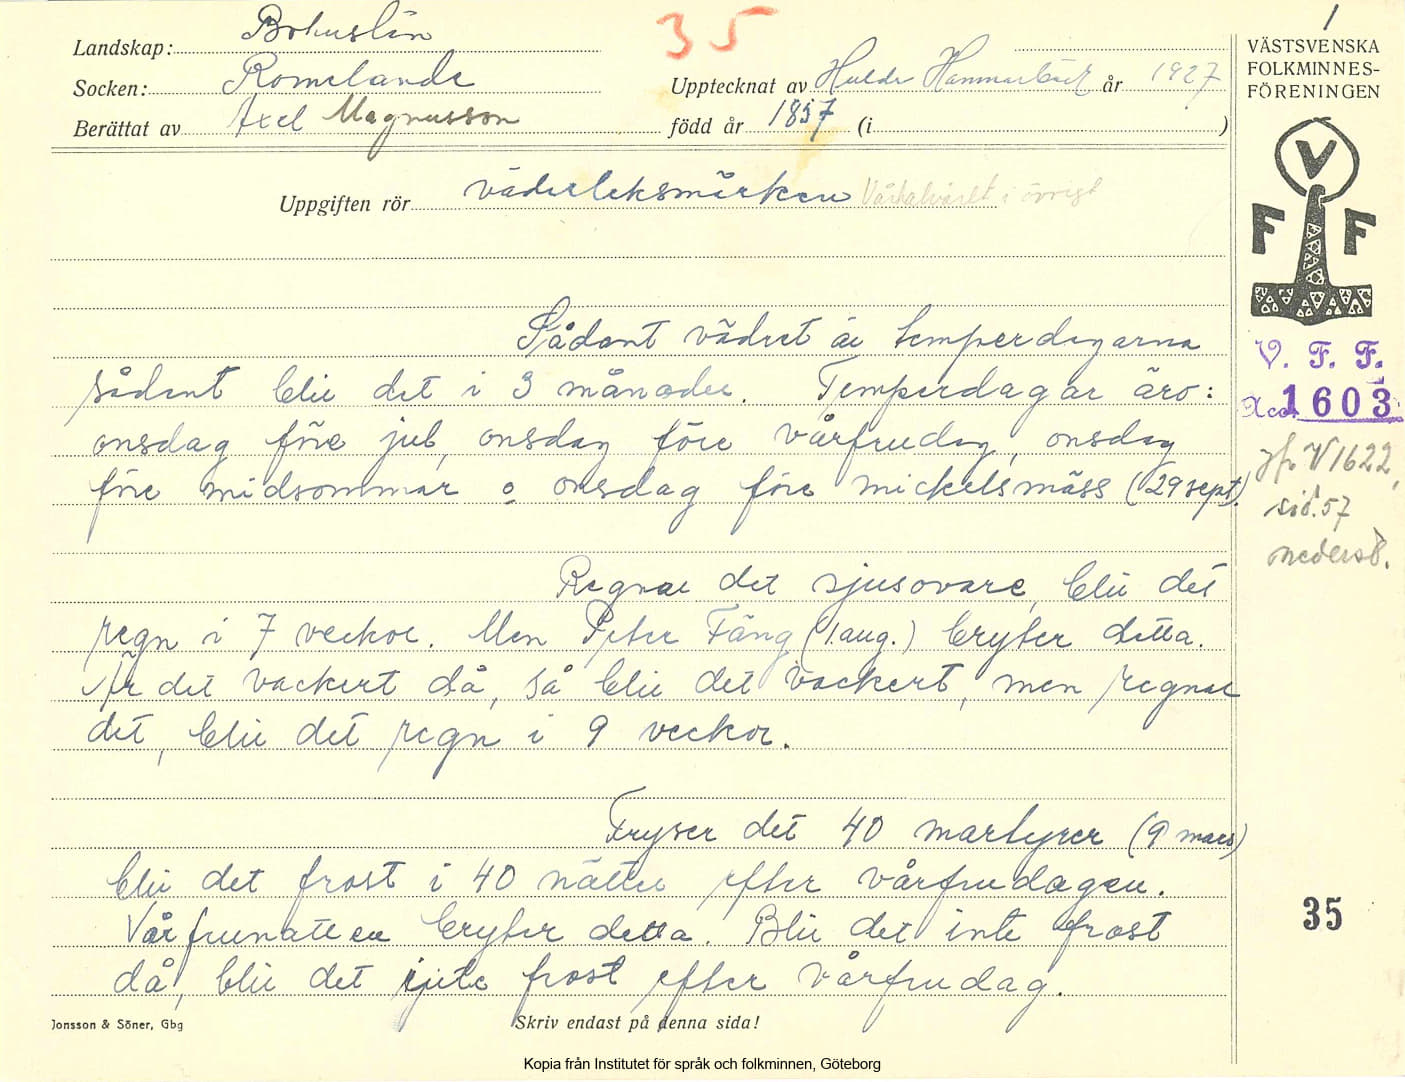 Landskap: Bohuslän
35
1
Socken: Romelanda
Upptecknat av Hulda Hammarbäck år 1927
Berättat av Axel Magnusson
född år 1857 (i )
VÄSTSVENSKA
FOLKMINNES-
FÖRENINGEN
V
F F
Uppgiften rör väderleksmärken i övrigt
Sådant vädret är temperdagarna
sådant blir det i 3 månader. Temperdagar äro:
onsdag före jul, onsdag före vårfrudag, onsdag
före midsommar o onsdag före mickelsmäss (29 sept).
V. F. F.
Acc. 1603
jfr V 1622,
sid. 57
nederst.
Regnar det sjusovare, blir det
regn i 7 veckor. Men Peter Fäng (1 aug.) bryter detta.
Är det vackert då, så blir det vackert, men regnar
det, blir det regn i 9 veckor.
Fryser det 40 martyrer (9 mars)
blir det frost i 40 nätter efter vårfrudagen.
Vårfrunatten bryter detta. Blir det inte frost
då, blir det inte frost efter vårfrudag.
35
Jonsson & Söner, Gbg
Skriv endast på denna sida!
Kopia från Institutet för språk och folkminnen, Göteborg